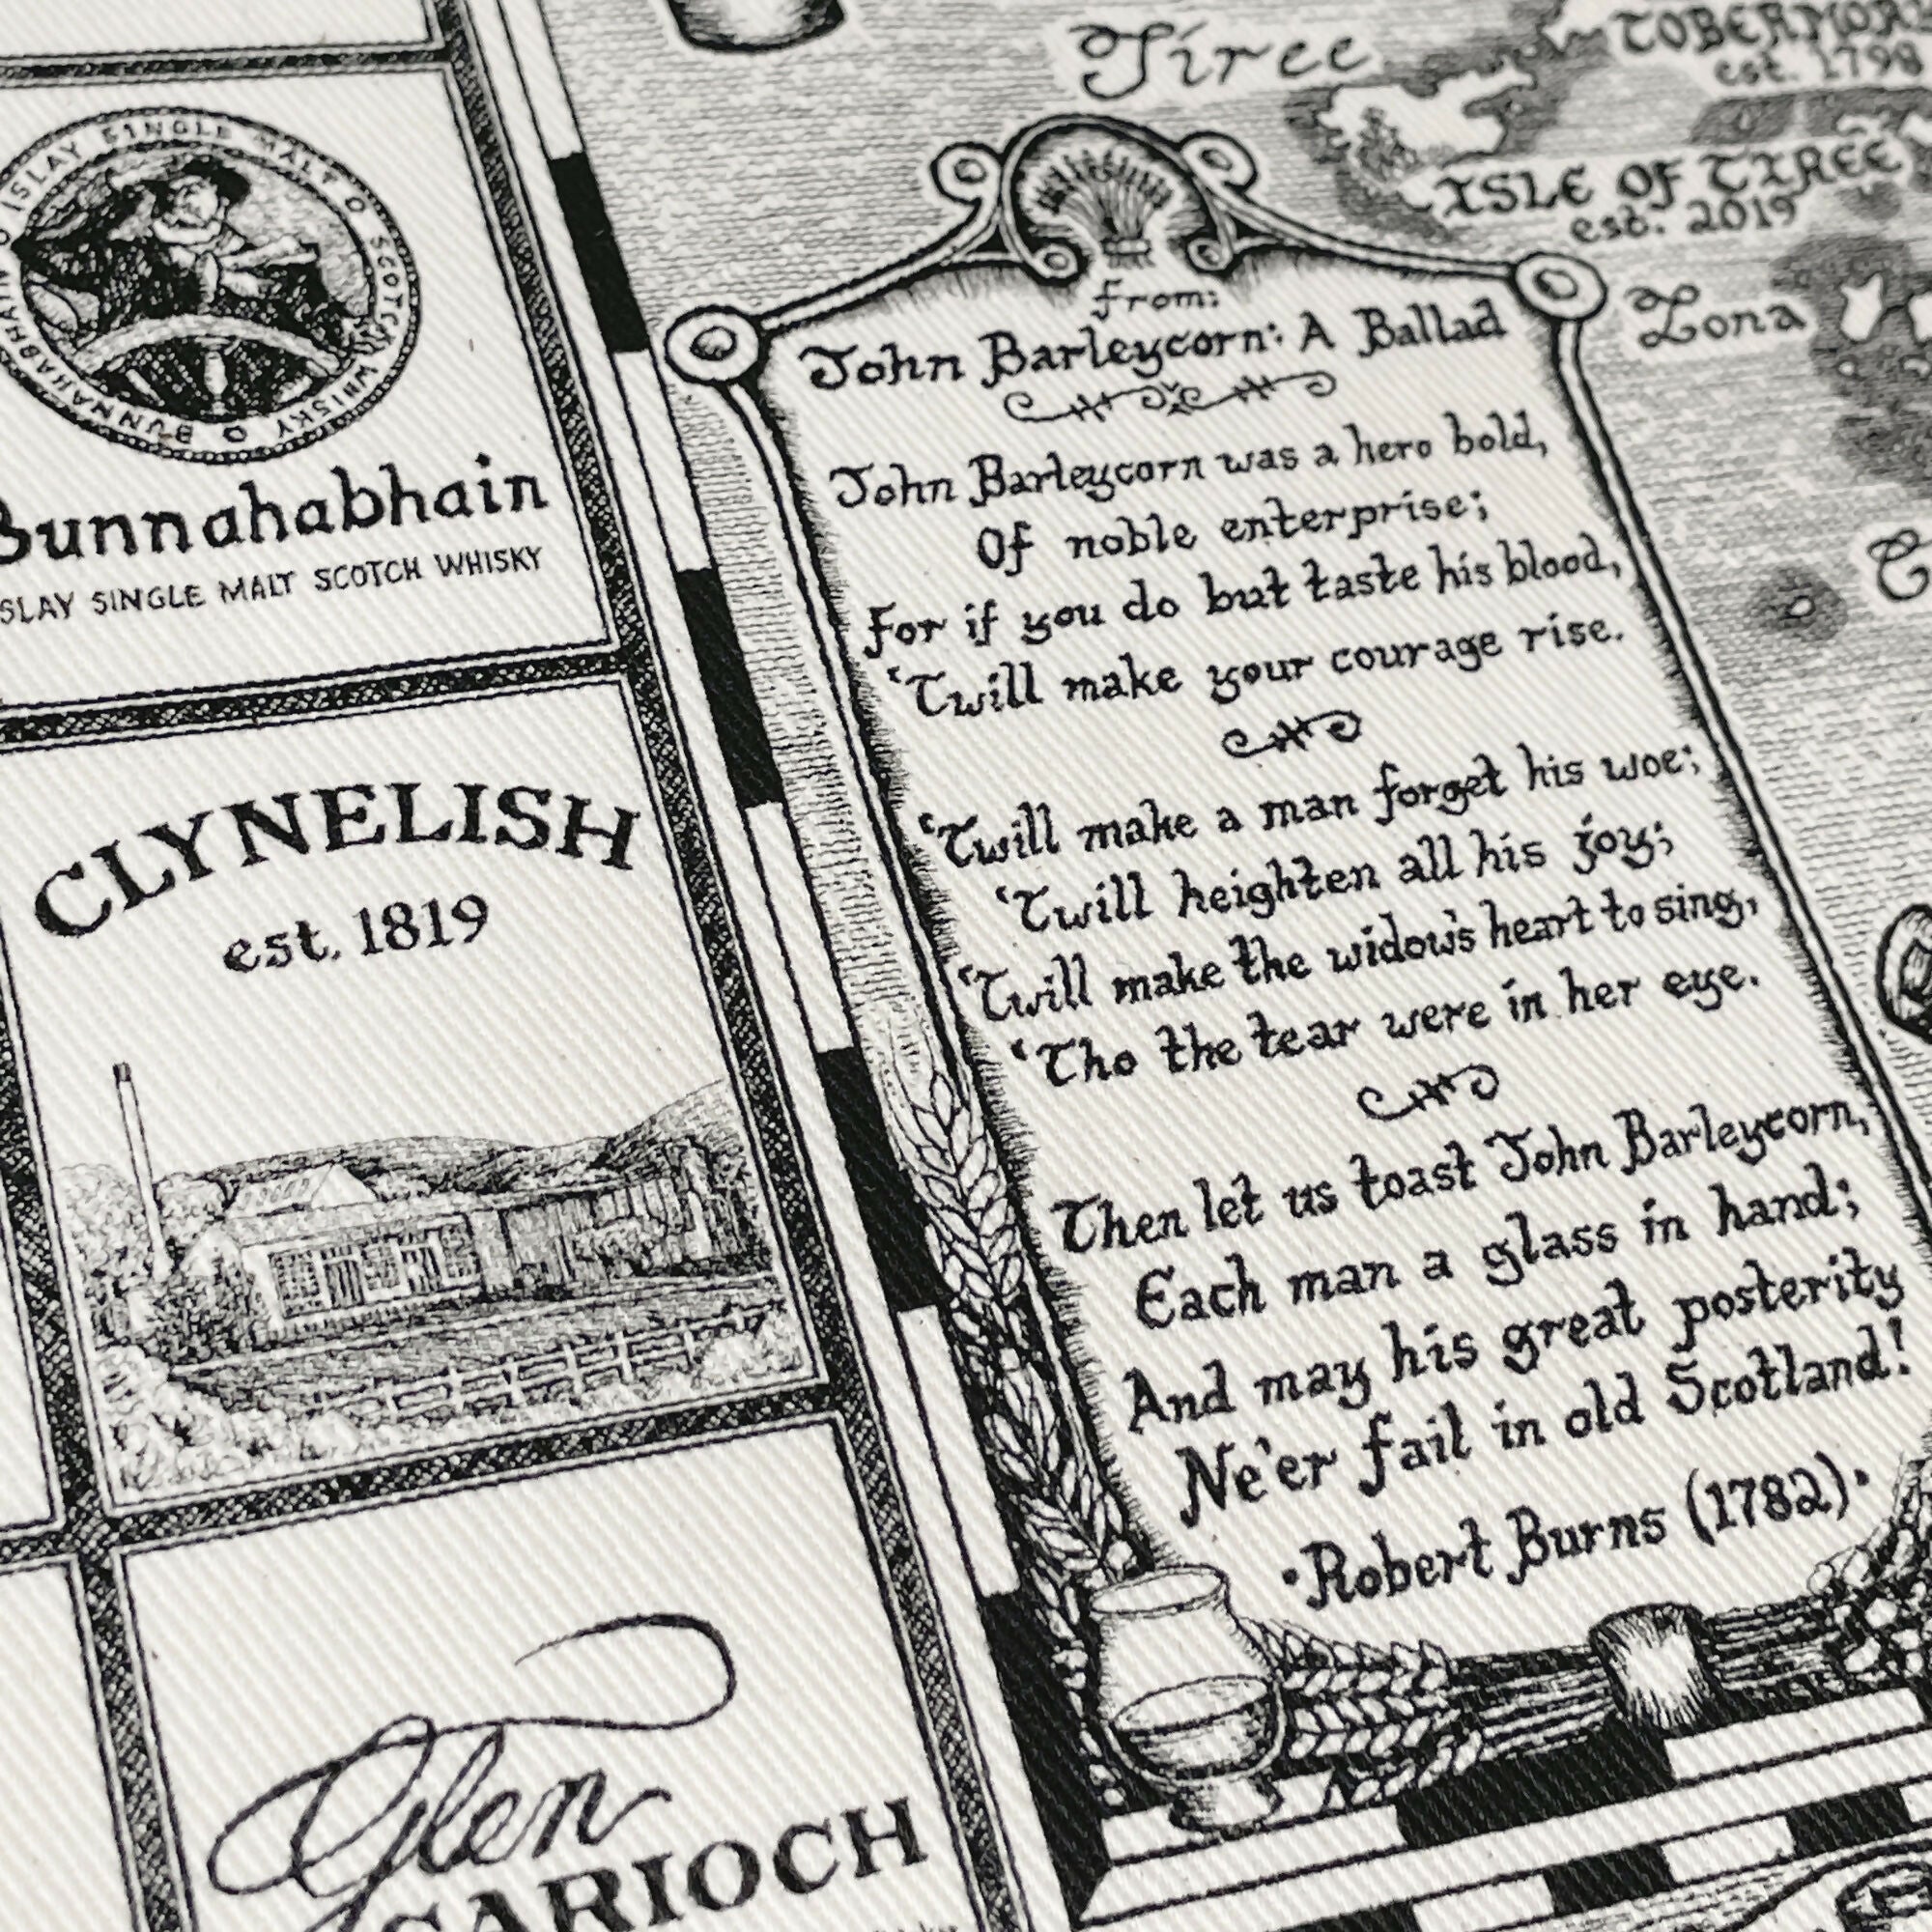 Tiree
TOBERMORY
est. 1798
ISLE OF TIREE
est. 2019
Iona
ISLAY SINGLE MALT O SCOTCH WHISKY O BUNNAHABHAIN O
Bunnahabhain
ISLAY SINGLE MALT SCOTCH WHISKY
CLYNELISH
est. 1819
Glen
GARIOCH
from:
John Barleycorn: A Ballad
John Barleycorn was a hero bold,
Of noble enterprise;
For if you do but taste his blood,
'Twill make your courage rise.
'Twill make a man forget his woe;
'Twill heighten all his joy;
'Twill make the widow's heart to sing,
'Tho the tear were in her eye.
Then let us toast John Barleycorn,
Each man a glass in hand;
And may his great posterity
Ne'er fail in old Scotland!
•Robert Burns (1782)•